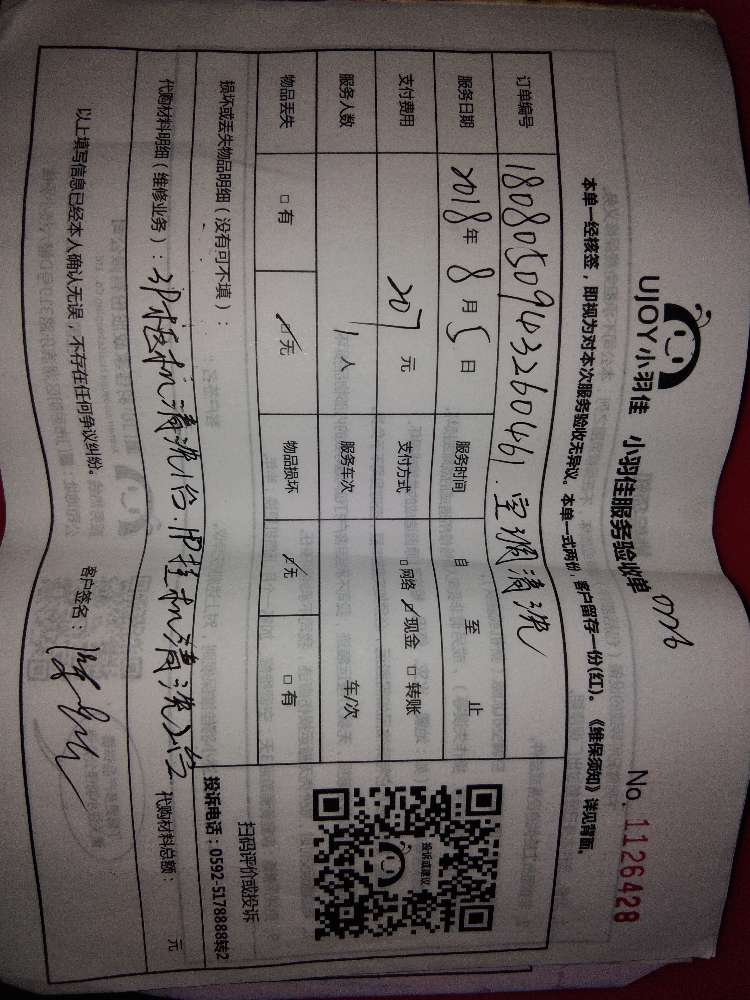 UJOY小羽佳 小羽佳服务验收单 No. 1126428
本单一经核签,即视为对本次服务验收无异议。本单一式两份,客户留存一份(红)。《维保须知》详见背面。
订单编号 180805094326046 空调清洗
服务日期 2018年8月5日 服务时间 自 至 止
支付费用 207元 支付方式 □网络 ☑现金 □转账
服务人数 1人 服务车次 车/次
物品丢失 □有 ☑无 物品损坏 ☑无 □有
损坏或丢失物品明细(没有可不填):
代购材料明细(维修业务):3P柜机清洗1台.1P挂机清洗2台 代购材料总额: 元
以上填写信息已经本人确认无误,不存在任何争议纠纷。 客户签名:
投诉或建议
扫码评价或投诉
投诉电话:0592-5178888转2